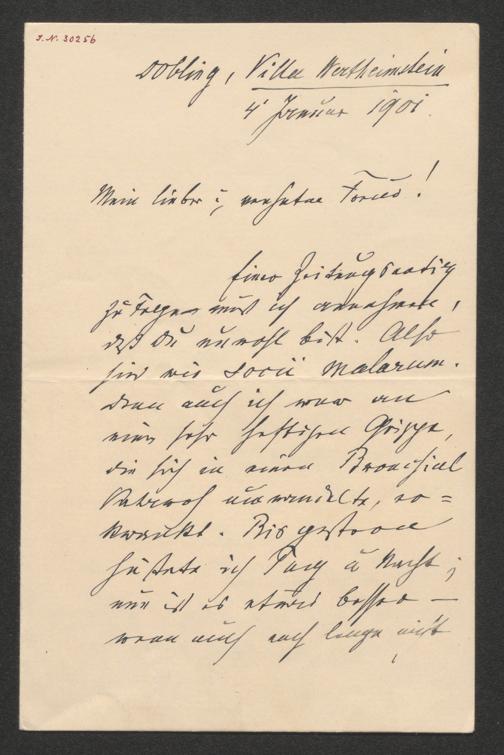 J. N. 30256
Döbling, Villa Wertheimstein
4' Januar 1901.
Mein lieber u. verehrter Freund!
Einer Zeitungsnotiz
zu Folge muß ich annehmen,
daß Du unwohl bist. Also
sind wir socii malorum.
Denn auch ich war an
einer sehr heftigen Grippe,
die sich in einen Bronchial
Katarrh umwandelte, er=
krankt. Bis gestern
hustete ich Tag u Nacht;
nun ist es etwas besser —
wenn auch noch lange nicht